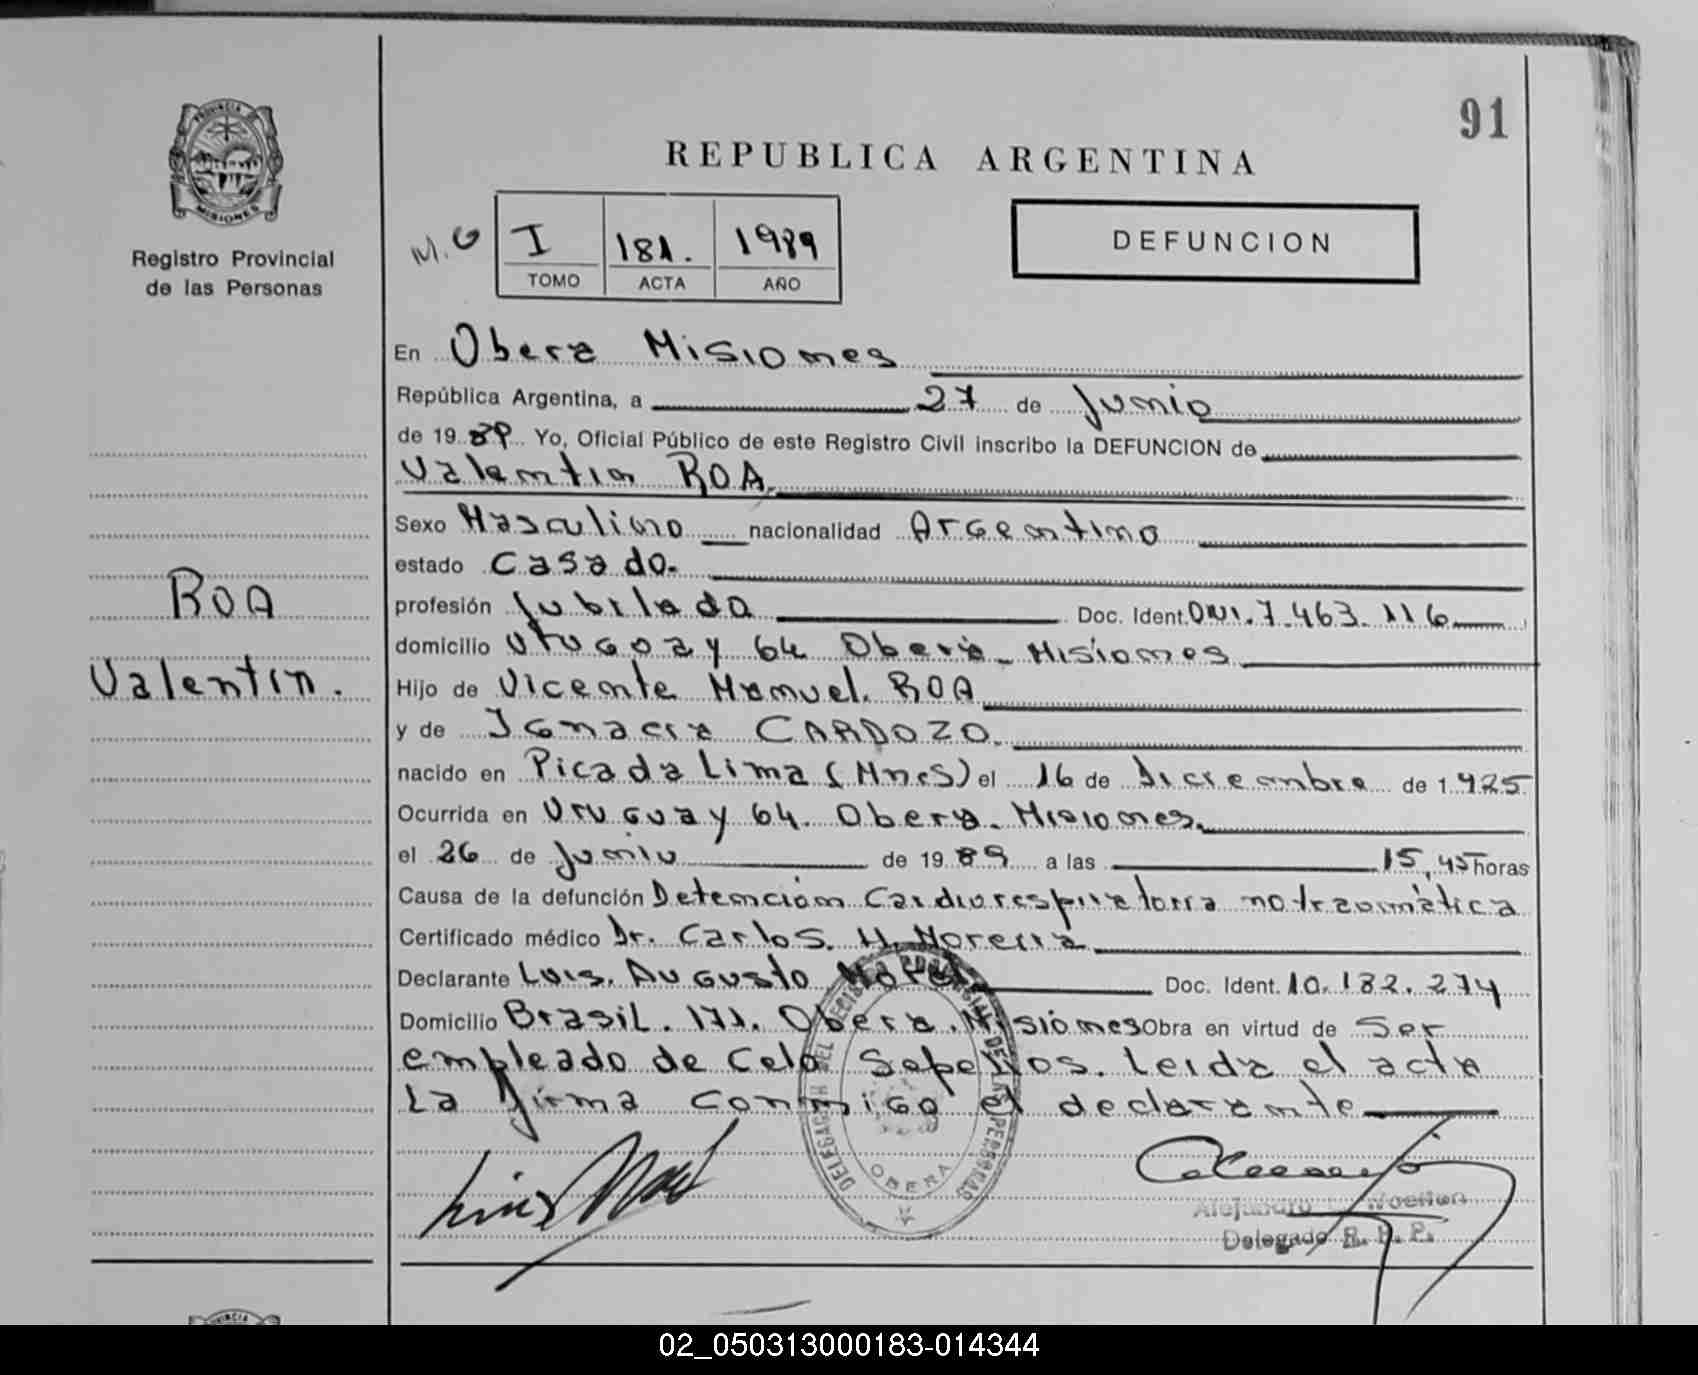 91
REPUBLICA ARGENTINA
PROVINCIA
MISIONES
Registro Provincial
de las Personas
M.G
I 181. 1989
TOMO ACTA AÑO
DEFUNCION
En Obera Misiones
República Argentina, a 27 de Junio
de 1989 Yo, Oficial Público de este Registro Civil inscribo la DEFUNCION de
Valentin ROA.
Sexo Masculino nacionalidad Argentino
estado Casado.
profesión Jubilado Doc. Ident. DNI. 7.463.116
domicilio Uruguay 64 Oberá - Misiones
Hijo de Vicente Manuel. ROA
y de Ignacia CARDOZO.
nacido en Picada Lima (Mnes) el 16 de Diciembre de 1.925
Ocurrida en Uruguay 64. Obera. Misiones.
el 26 de Junio de 1989 a las 15,45 horas
Causa de la defunción Detención Cardiorespiratoria no traumática
Certificado médico Dr. Carlos. H. Moreira
Declarante Luis. Augusto Doc. Ident. 10.182.274
Domicilio Brasil. 171. Obera. Misiones Obra en virtud de Ser
empleado de Celo Sepelios. Leida el acta
La firma conmigo el declarante
ROA
Valentin.
DELEGACION DEL REGISTRO PROVINCIAL DE LAS PERSONAS
OBERA
Alejandro
Delegado R. P. P.
02_050313000183-014344